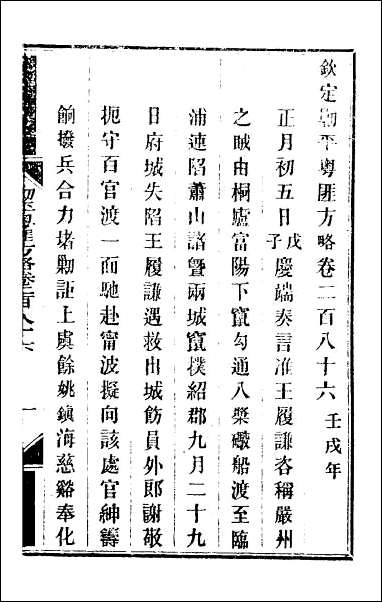 欽定勦平粵匪方略卷二百八十六 壬戌年
正月初五日戊子慶端奏言准王履謙咨稱嚴州
之賊由桐廬富陽下竄勾通八槳礮船渡至臨
浦連陷蕭山諸暨兩城竄撲紹郡九月二十九
日府城失陷王履謙遇救出城飭員外郎謝敬
扼守百官渡一面馳赴甯波擬向該處官紳籌
餉撥兵合力堵勦詎上虞餘姚鎮海慈谿奉化
勦平粵匪方略卷二百八十六
一